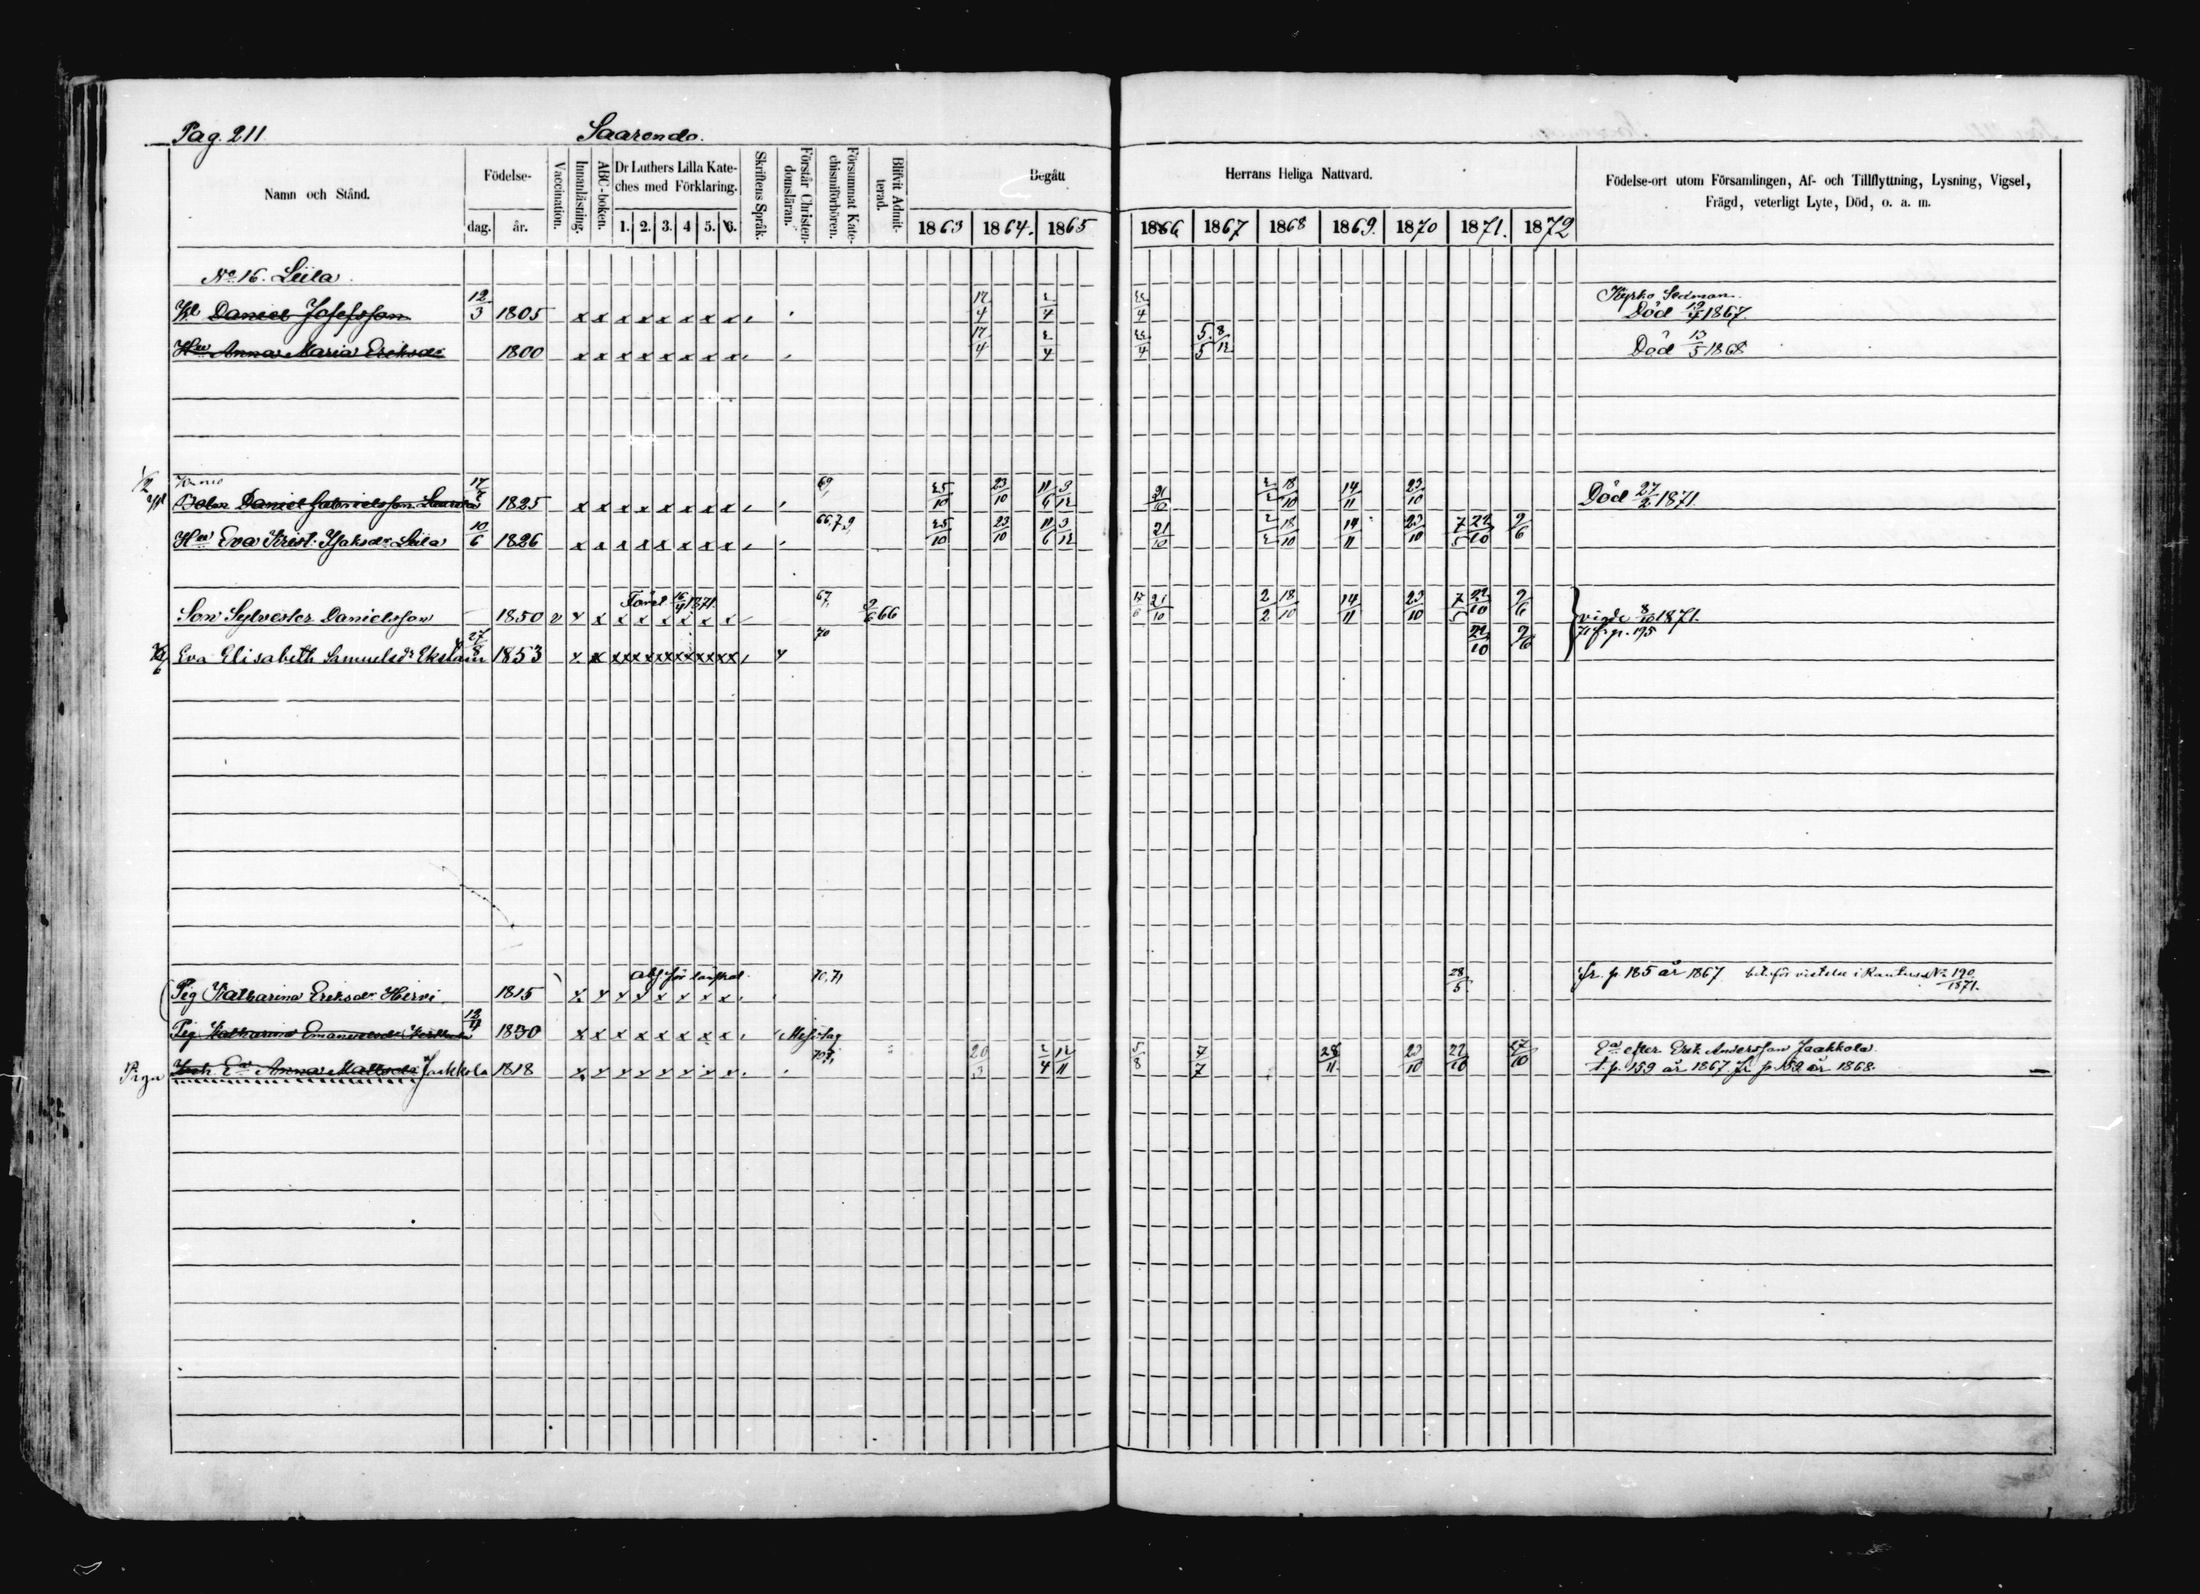 Pag. 211 Saarendo.
Namn och Stånd. Födelse- dag. år. Vaccination. Innanläsning. ABC-boken. Dr Luthers Lilla Kate-ches med Förklaring. 1. 2. 3. 4 5. 6. Skriftens Språk. Förstår Christen-domsläran. Försummat Kate-chismiförhören. Blifvit Admit-terad. Begått 1863 1864. 1865
Herrans Heliga Nattvard. 1866 1867 1868 1869. 1870 1871. 1872
Födelse-ort utom Församlingen, Af- och Tillflyttning, Lysning, Vigsel,
Frägd, veterligt Lyte, Död, o. a. m.
No 16. Liila.
Daniel Josefsson 12/3 1805 x x x x x x x x 17/4 2/4 22/4 Kyrko Sexman. Död 19/4 1867
Hu Anna Maria Eriksdr 1800 x x x x x x x x 17/4 2/4 22/4 5/5 8/12 Död 13/5 1868
Daniel Gabrielsson 17/7 1825 x x x x x x x x 69 25/10 23/10 11/6 3/12 21/10 2/2 18/10 14/11 23/10 Död 27/2 1871.
Hu Eva Krist. Isaksdr Liila 10/6 1826 x x x x x x x x 66,7,9, 25/10 23/10 11/6 3/12 21/10 2/2 18/10 14/11 23/10 7/5 22/10 9/6
Son Sylvester Danielsson 1850 v x x x x x x x x 67, 9/6 66 21/10 2/2 18/10 14/11 23/10 7/5 22/10 9/6 vigde 8/10 1871.
Eva Elisabeth Samuelsdr Ekstam 27/8 1853 x x xx xx xx xx xx xx 70 22/10 9/6 71 fr p. 195
Pig Katharina Eriksdr Hirvi 1815 x x x x x x x x 70,71 28/5 fr. p 185 år 1867 No 190/1871.
Pig Katharina Emanuelsdr 12/4 1830 x x x x x x x x
Ea Anna Mattsdr Jaakkola 1818 x x x x x x x x 20/3 2/4 12/11 5/8 7/7 28/11 23/10 22/10 27/10 Ea efter Erik Andersson Jaakkola.
t. p. 159 år 1867 fr p 159 år 1868.